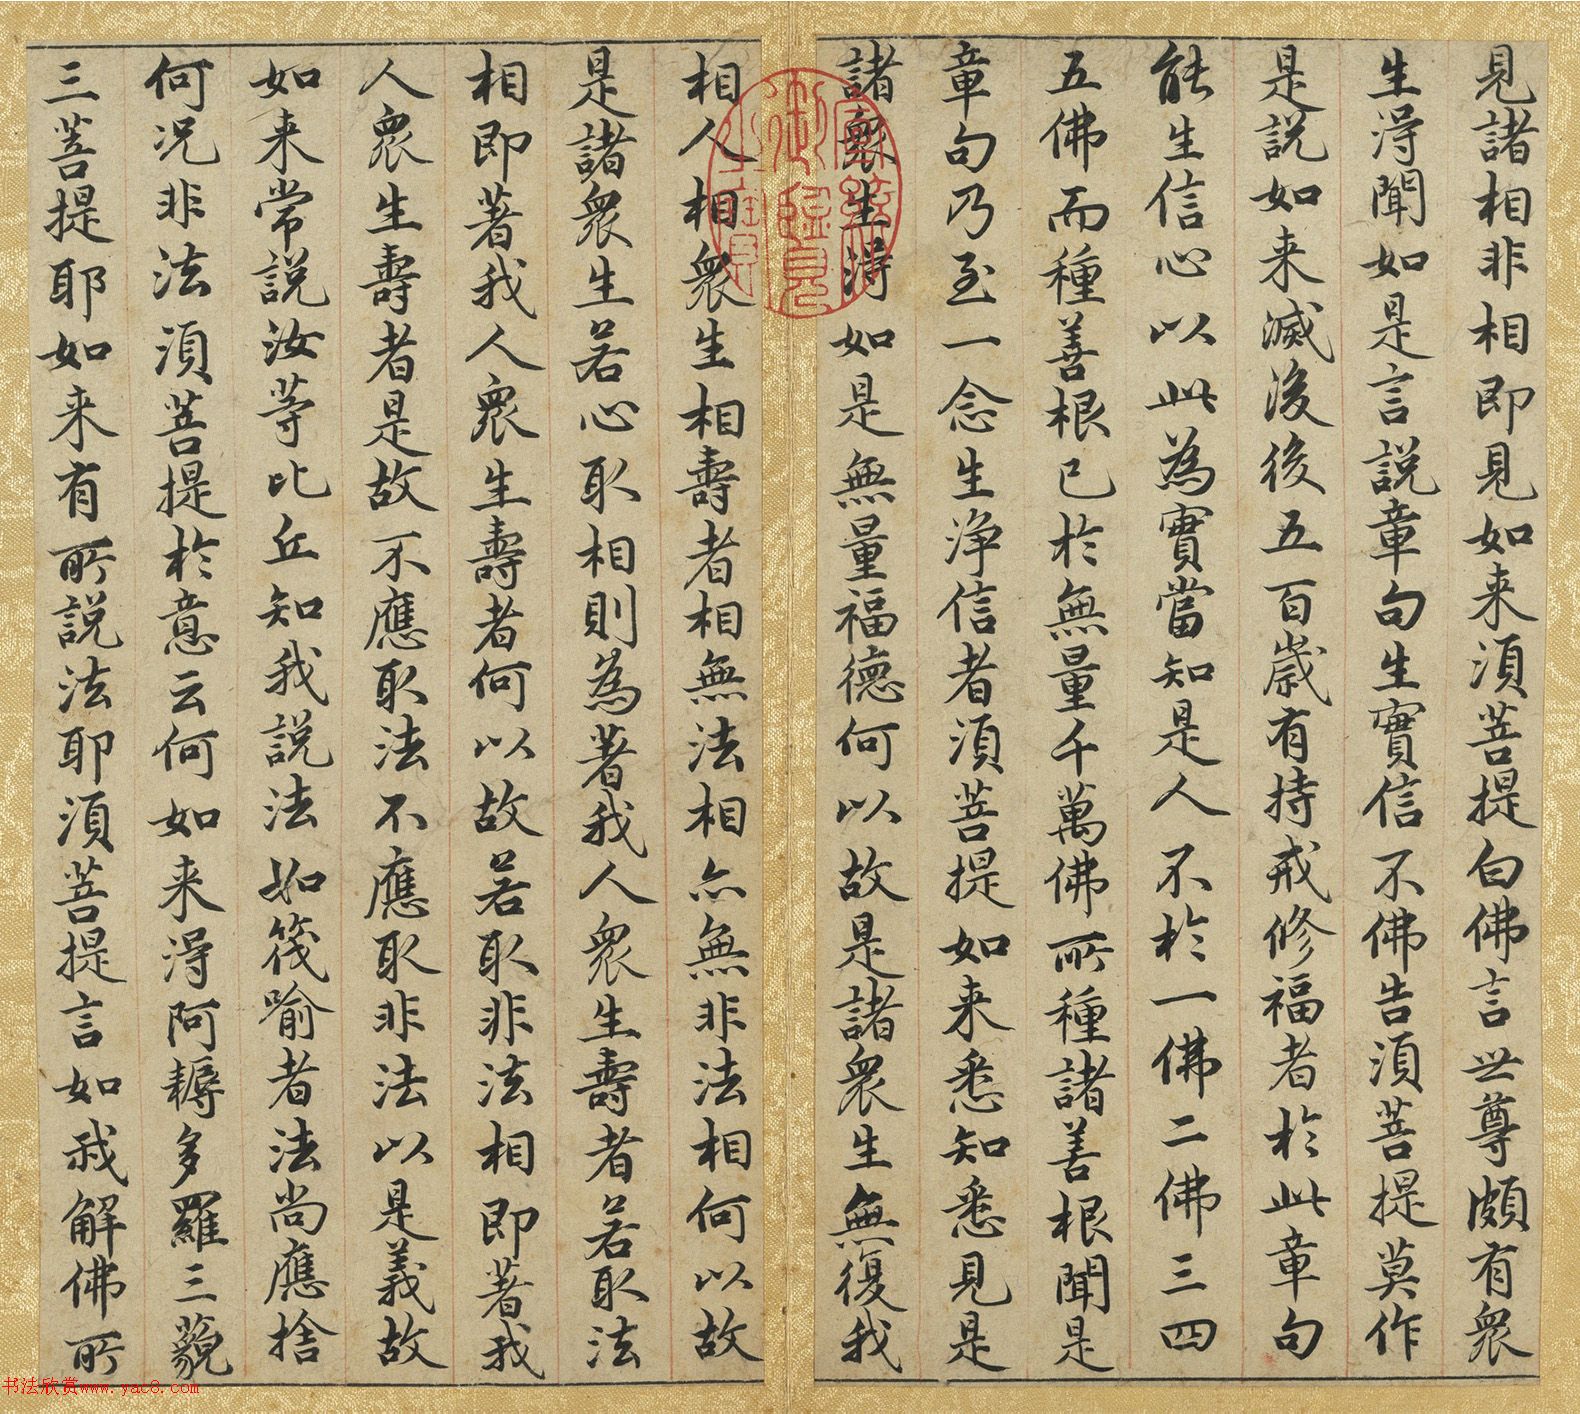 見諸相非相即見如来須菩提白佛言世尊頗有衆
生淂聞如是言說章句生實信不佛告須菩提莫作
是說如来滅後後五百歲有持戒修福者於此章句
能生信心以此為實當知是人不於一佛二佛三四
五佛而種善根已於無量千萬佛所種諸善根聞是
章句乃至一念生淨信者須菩提如来悉知悉見是
諸衆生淂如是無量福德何以故是諸衆生無復我
相人相衆生相壽者相無法相亦無非法相何以故
是諸衆生若心取相則為著我人衆生壽者若取法
相即著我人衆生壽者何以故若取非法相即著我
人衆生壽者是故不應取法不應取非法以是義故
如来常說汝等比丘知我說法如筏喻者法尚應捨
何况非法須菩提於意云何如来淂阿耨多羅三藐
三菩提耶如来有所說法耶須菩提言如我解佛所
御覽
书法欣赏www.yac8.com